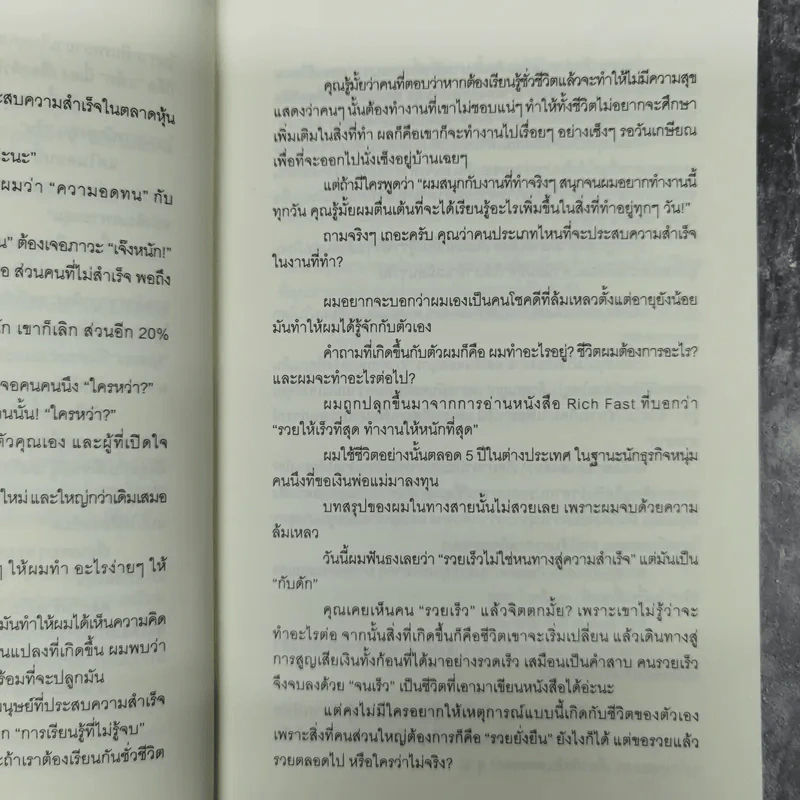 ะสบความสำเร็จในตลาดหุ้น
ะนะ"
ผมว่า "ความอดทน" กับ
น" ต้องเจอภาวะ "เจ๊งหนัก!"
อ ส่วนคนที่ไม่สำเร็จ พอถึง
ัก เขาก็เลิก ส่วนอีก 20%
จอคนคนนึง "ใครหว่า?"
วนนั้น! "ใครหว่า?"
ตัวคุณเอง และผู้ที่เปิดใจ
ใหม่ และใหญ่กว่าเดิมเสมอ
ๆ ให้ผมทำ อะไรง่ายๆ ให้
มันทำให้ผมได้เห็นความคิด
นแปลงที่เกิดขึ้น ผมพบว่า
ร้อมที่จะปลูกมัน
นุษย์ที่ประสบความสำเร็จ
ก "การเรียนรู้ที่ไม่รู้จบ"
ะถ้าเราต้องเรียนกันชั่วชีวิต
คุณรู้มั้ยว่าคนที่ตอบว่าหากต้องเรียนรู้ชั่วชีวิตแล้วจะทำให้ไม่มีความสุข
แสดงว่าคนๆ นั้นต้องทำงานที่เขาไม่ชอบแน่ๆ ทำให้ทั้งชีวิตไม่อยากจะศึกษา
เพิ่มเติมในสิ่งที่ทำ ผลก็คือเขาก็จะทำงานไปเรื่อยๆ อย่างเซ็งๆ รอวันเกษียณ
เพื่อที่จะออกไปนั่งเซ็งอยู่บ้านเฉยๆ
แต่ถ้ามีใครพูดว่า "ผมสนุกกับงานที่ทำจริงๆ สนุกจนผมอยากทำงานนี้
ทุกวัน คุณรู้มั้ยผมตื่นเต้นที่จะได้เรียนรู้อะไรเพิ่มขึ้นในสิ่งที่ทำอยู่ทุกๆ วัน!"
ถามจริงๆ เถอะครับ คุณว่าคนประเภทไหนที่จะประสบความสำเร็จ
ในงานที่ทำ?
ผมอยากจะบอกว่าผมเองเป็นคนโชคดีที่ล้มเหลวตั้งแต่อายุยังน้อย
มันทำให้ผมได้รู้จักกับตัวเอง
คำถามที่เกิดขึ้นกับตัวผมก็คือ ผมทำอะไรอยู่? ชีวิตผมต้องการอะไร?
และผมจะทำอะไรต่อไป?
ผมถูกปลุกขึ้นมาจากการอ่านหนังสือ Rich Fast ที่บอกว่า
"รวยให้เร็วที่สุด ทำงานให้หนักที่สุด"
ผมใช้ชีวิตอย่างนั้นตลอด 5 ปีในต่างประเทศ ในฐานะนักธุรกิจหนุ่ม
คนนึงที่ขอเงินพ่อแม่มาลงทุน
บทสรุปของผมในทางสายนั้นไม่สวยเลย เพราะผมจบด้วยความ
ล้มเหลว
วันนี้ผมฟันธงเลยว่า "รวยเร็วไม่ใช่หนทางสู่ความสำเร็จ" แต่มันเป็น
"กับดัก"
คุณเคยเห็นคน "รวยเร็ว" แล้วจิตตกมั้ย? เพราะเขาไม่รู้ว่าจะ
ทำอะไรต่อ จากนั้นสิ่งที่เกิดขึ้นก็คือชีวิตเขาจะเริ่มเปลี่ยน แล้วเดินทางสู่
การสูญเสียเงินทั้งก้อนที่ได้มาอย่างรวดเร็ว เสมือนเป็นคำสาบ คนรวยเร็ว
จึงจบลงด้วย "จนเร็ว" เป็นชีวิตที่เอามาเขียนหนังสือได้อ่ะนะ
แต่คงไม่มีใครอยากให้เหตุการณ์แบบนี้เกิดกับชีวิตของตัวเอง
เพราะสิ่งที่คนส่วนใหญ่ต้องการก็คือ "รวยยั่งยืน" ยังไงก็ได้ แต่ขอรวยแล้ว
รวยตลอดไป หรือใครว่าไม่จริง?